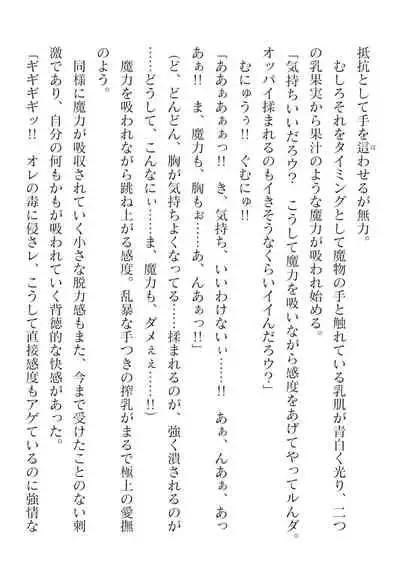 抵抗として手を這わせるが無力。
　むしろそれをタイミングとして魔物の手と触れている乳肌が青白く光り、二つ
の乳果実から果汁のような魔力が吸われ始める。
「気持ちいいだろウ？　こうして魔力を吸いながら感度をあげてやってルんダ。
オッパイ揉まれるのもイきそうなくらいイイんだろウ？」
　むにゅうぅ!!　ぐむにゅ!!
「ああぁあぁぁっ!!　き、気持ち、いいわけないぃ……!!　あぁ、んあぁ、あっ
あぁ!!　ま、魔力も、胸もぉ……あ、んあぁっ!!」
（ど、どんどん、胸が気持ちよくなってる……揉まれるのが、強く潰されるのが
……どうして、こんなにぃ……ま、魔力も、ダメぇぇ……!!）
　魔力を吸われながら跳ね上がる感度。乱暴な手つきの搾乳がまるで極上の愛撫
のよう。
　同様に魔力が吸収されていく小さな脱力感もまた、今まで受けたことのない刺
激であり、自分の何もかもが吸われていく背徳的な快感があった。
「ギギギギッ!!　オレの毒に侵さレ、こうして直接感度もアゲているのに強情な